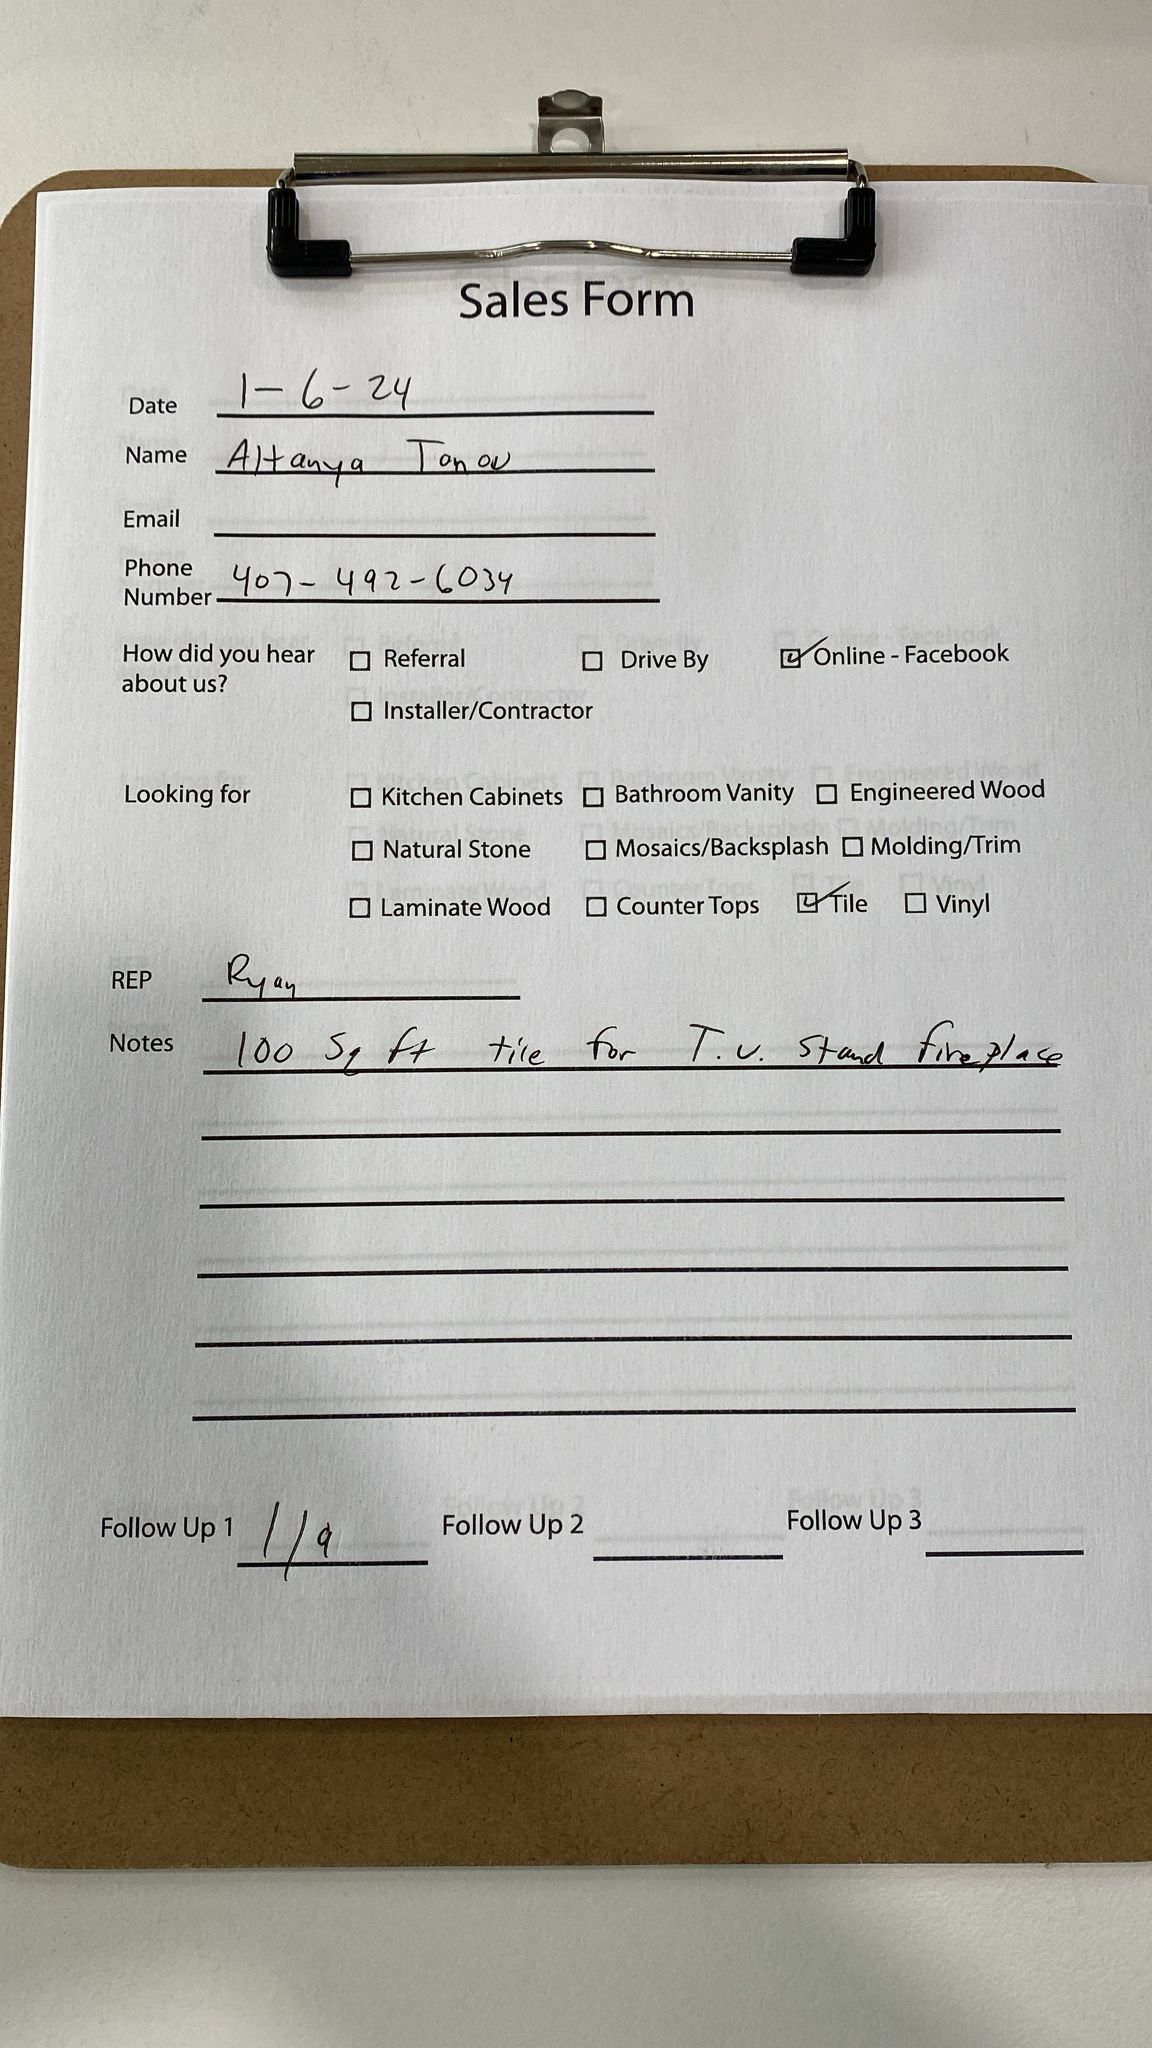 Sales Form
Date 1-6-24
Name Altanya Tonov
Email
Phone Number 407-492-6034
How did you hear about us? ☐ Referral ☐ Drive By ☑ Online - Facebook
☐ Installer/Contractor
Looking for ☐ Kitchen Cabinets ☐ Bathroom Vanity ☐ Engineered Wood
☐ Natural Stone ☐ Mosaics/Backsplash ☐ Molding/Trim
☐ Laminate Wood ☐ Counter Tops ☑ Tile ☐ Vinyl
REP Ryan
Notes 100 Sq ft tile for T.V. Stand fireplace
Follow Up 1 1/9 Follow Up 2 Follow Up 3